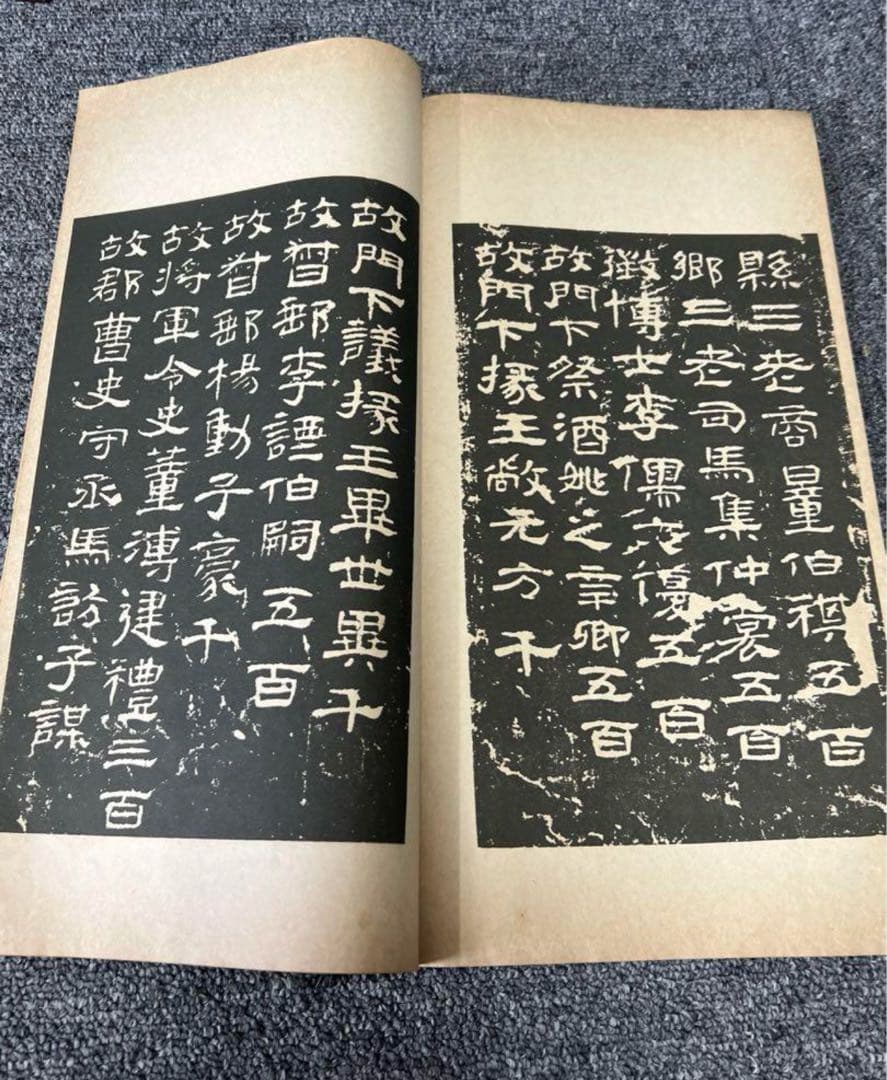 縣三老商量伯祺五百
鄉三老司馬集仲裳五百
徵博士李儒文優五百
故門下祭酒姚之辛卿五百
故門下掾王敞元方千
故門下議掾王畢世異千
故督郵李諲伯嗣五百
故督郵楊動子豪千
故將軍令史董溥建禮三百
故郡曹史守丞馬訪子謀